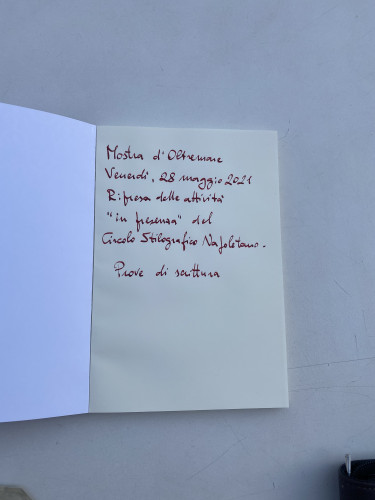 Mostra d'Oltremare
Venerdì, 28 maggio 2021
Ripresa delle attività
"in presenza" del
Circolo Stilografico Napoletano.
Prove di scrittura